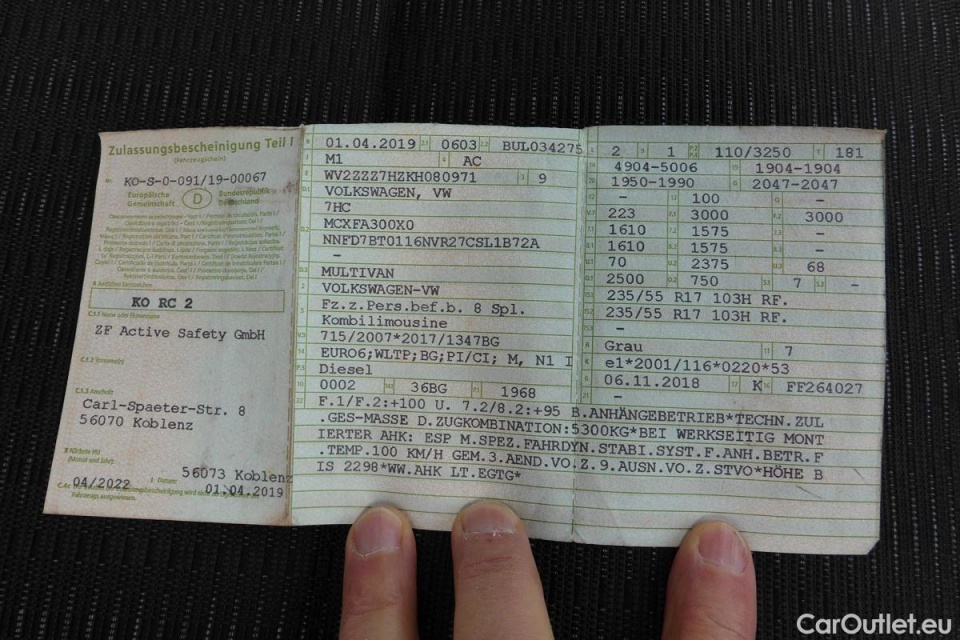 Zulassungsbescheinigung Teil I
(Fahrzeugschein)
Nr. KO-S-0-091/19-00067
Europäische Gemeinschaft D Bundesrepublik Deutschland
KO RC 2
C.1.1 Name oder Firmenname
ZF Active Safety GmbH
C.1.2 Vorname(n)
C.1.3 Anschrift
Carl-Spaeter-Str. 8
56070 Koblenz
Nächste HU
(Monat und Jahr)
04/2022
56073 Koblenz
01.04.2019
01.04.2019 2.1 0603 2.2 BUL034275
M1 AC
WV2ZZZ7HZKH080971 3 9
VOLKSWAGEN, VW
7HC
MCXFA300X0
NNFD7BT0116NVR27CSL1B72A
–
MULTIVAN
VOLKSWAGEN-VW
Fz.z.Pers.bef.b. 8 Spl.
Kombilimousine
715/2007*2017/1347BG
EURO6;WLTP;BG;PI/CI; M, N1 I
Diesel
0002 36BG 1968
2 1 110/3250 181
4904-5006 1904-1904
1950-1990 2047-2047
– 100 –
223 3000 3000
1610 1575 –
1610 1575 –
70 2375 68
2500 750 7 –
235/55 R17 103H RF.
235/55 R17 103H RF.
–
Grau 7
e1*2001/116*0220*53
06.11.2018 K FF264027
–
F.1/F.2:+100 U. 7.2/8.2:+95 B.ANHÄNGEBETRIEB*TECHN.ZUL
.GES-MASSE D.ZUGKOMBINATION:5300KG*BEI WERKSEITIG MONT
IERTER AHK: ESP M.SPEZ.FAHRDYN.STABI.SYST.F.ANH.BETR.F
.TEMP.100 KM/H GEM.3.AEND.VO.Z.9.AUSN.VO.Z.STVO*HÖHE B
IS 2298*WW.AHK LT.EGTG*
CarOutlet.eu